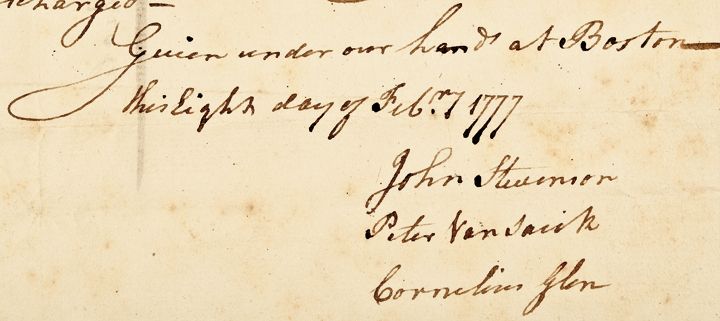 charged —
Given under our hands at Boston
this Eight day of Febry 1777
John Stevenson
Peter Vansaick
Cornelius Glen